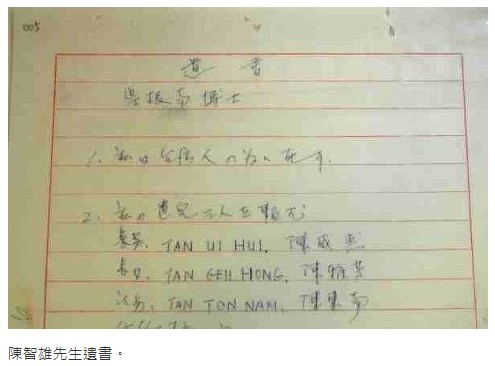 005
遺書
吳振南博士
1. 私は台湾人の為に死す.
2. 私の遺児三人を頼む
長男、TAN UI HUI. 陳威惠
長女、TAN GEH HONG. 陳雅芳
次男、TAN TON NAM. 陳東南
陳智雄先生遺書。